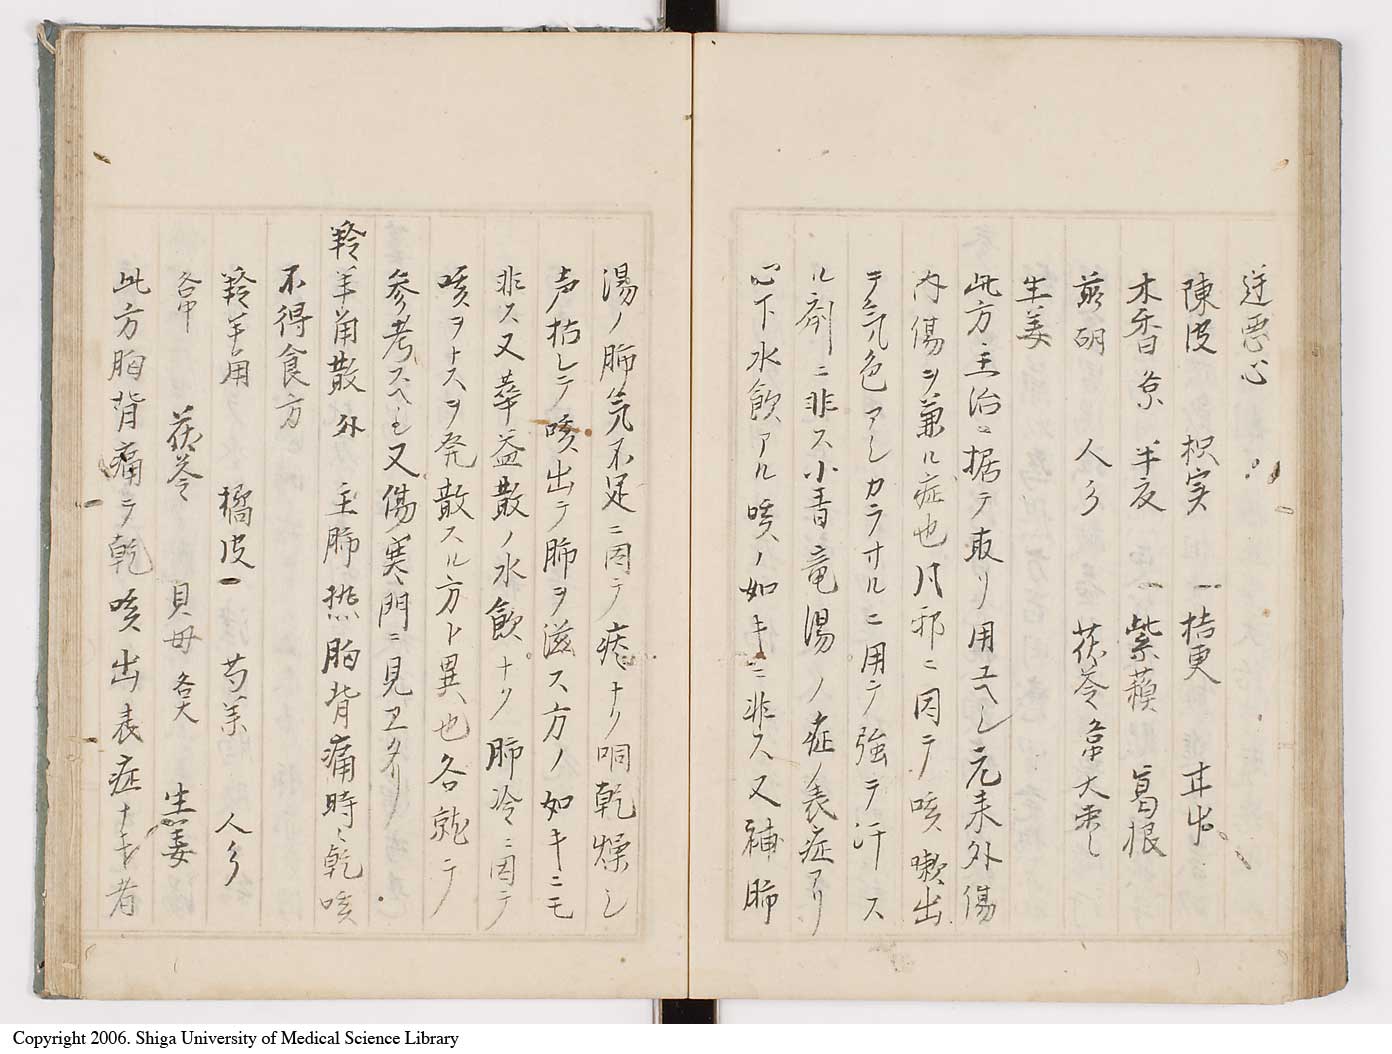 逆悪心
陳皮 枳実 一桔更 甘出
木香 各 半夜 一紫蘓 葛根
前胡 人参 茯苓 各 大棗
生姜
此方主治ニ据テ取リ用エヘシ元来外傷
内傷ヲ兼ル症也凡邪ニ因テ咳嗽出
キ気色アシカラサルニ用テ強テ汗ス
ル剤ニ非ス小青竜湯ノ症ノ表症アリ
心下水飲アル咳ノ如キニ非ス又補肺
湯ノ肺気不足ニ因テ痰ナク咽乾燥シ
声枯レテ咳出テ肺ヲ滋ス方ノ如キニモ
非ス又華益散ノ水飲ナク肺冷ニ因テ
咳ヲトスヲ発散スル方ト異也各就テ
参考スヘシ又傷寒門ニ見ヱタリ
羚羊角散 外 主肺熱胸背痛時〻乾咳
不得食方
羚羊角 橘皮一 芍薬 人参
各中 茯苓 貝母 各大 生姜
此方胸背痛テ乾咳出表症ナキ者